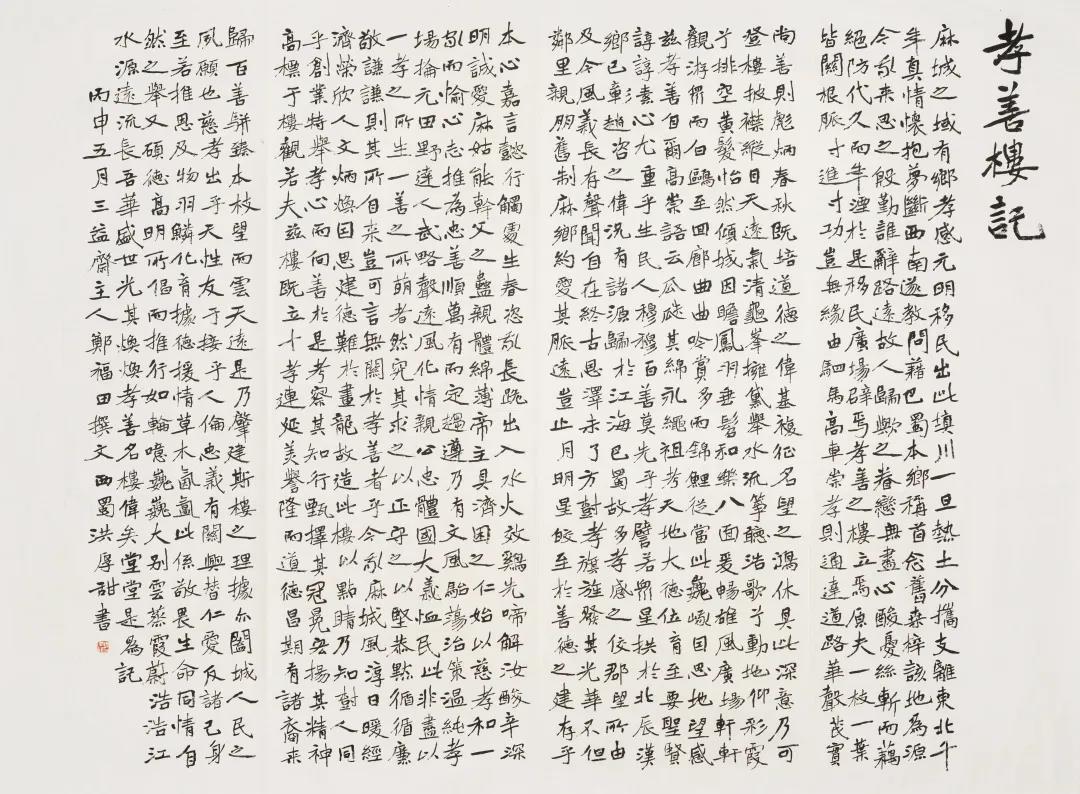 孝善樓記
麻城之域有鄉孝感元明移民出此填川一旦熱土分攜支離東北斗
牟真情懷抱夢斷西南遂教問藉巴蜀本鄉稱首念舊桑梓該地為源
今亂来思之殷勤誰辭路遠故人歸歟之眷戀無盡心酸憂絲斬而藕
絕防代久而年湮於是移民廣場辟焉孝善之樓立焉原夫一枝一葉
皆關根脈寸進寸功豈無緣由駟馬高車崇孝則通達道路華聲茂實
尚善則彪炳春秋既培道德之偉基複征名望之鴻休具此深意乃可
登樓披襟縱目天遠氣清龜峯擁黛舉水流箏聽浩歌兮動地仰彩霞
兮排空黄髮怡然傾城因瞻鳳羽垂髫和樂八面爰暢雄風廣場軒軒
觀游羣而白鷗至回廊曲曲吟賞多而錦鯉從當此巍峨因思地望感
兹孝善自爾高崇語云瓜瓞其綿永繩祖考天地大德位育至要聖賢
諄諄素心尤重乎生民人穆穆百善莫先乎孝譬若衆星拱於北辰漢
鄉已彰趙咨之偉況有諸源歸於江海巴蜀故多孝感之佼郡望所由
及今風義長存聲聞自在終古恩澤未了方對孝旗旌發其光華不但
鄰里親朋舊制麻鄉約愛其脈遠豈止月明星皎至於善德之建存乎
本心嘉言懿行觸處生春恣亂長跪出入水火效鷄先啼解汝酸辛深
明誠愛麻姑能幹父之蠱親體綿薄帝主具濟困之仁始以慈孝和一
而愉心志推為忠善順萬有而定趨遵乃有文風駘蕩治策温純孝
場掄元田野達人武略聲遠風化情親公忠體國大義恤民此非盡以
一孝之所生一善之所萌者然究其求之以正守之以堅恭黙循循廉
敬謙謙則其所自来豈可言無關於孝善者乎今亂麻城風淳日暖經
濟榮欣人文炳煥因思建德難於畫龍故造此樓以點睛乃知對人同
乎創業特舉孝心而向善於是考察其知行甄擇其冠冕宏揚其精神
高標于樓觀若夫兹樓既立十孝連延美譽隆而道德昌期有諸裔来
歸百善駢臻本枝望而雲天遠是乃肇建斯樓之理據亦闔城人民之
風願也慈孝出乎天性友于接乎人倫忠義有關興替仁愛反諸己身
至若推恩及物羽鱗化育據德援情草木氤氳此係敬畏生命同情自
然之舉又碩德高明所倡而推行如輪噫巍巍大别雲蒸霞蔚浩浩江
水源遠流長吾華盛世光其煥煥孝善名樓偉矣堂堂是爲記
丙申五月三益齋主人鄭福田撰文西蜀洪厚甜書